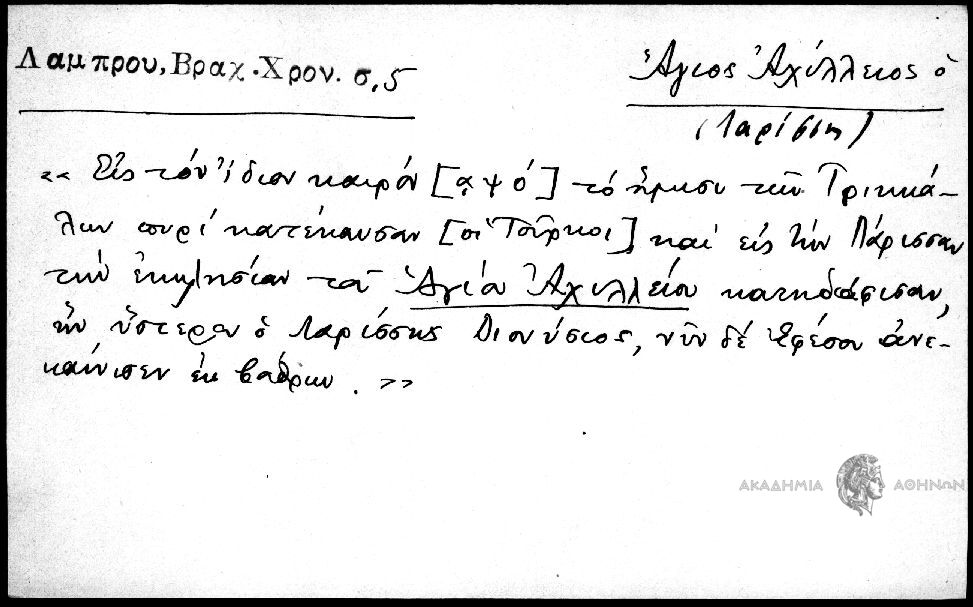 Λαμπρου, Βραχ. Χρον. σ. 5
Ἅγιος Ἀχίλλειος ὁ
(Λαρίσης)
«Εἰς τὸν ἴδιον καιρὸν [͵αψό] τὸ τῶν Τρικκά-
λων πυρὶ κατέκαυσαν [οἱ Τοῦρκοι] καὶ εἰς τὴν Λάρισσαν
τὴν ἐκκλησίαν τοῦ Ἁγίου Ἀχιλλείου κατηδάφισαν,
ἣν ὕστερον ὁ Λαρίσσης Διονύσιος, νῦν δὲ Ἐφέσου ἀνε-
καίνισεν ἐκ βάθρων. »
ΑΚΑΔΗΜΙΑ ΑΘΗΝΩΝ